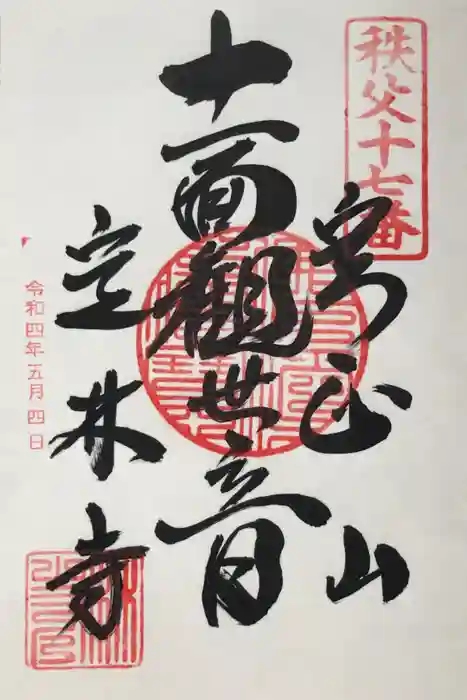 秩父十七番
實正山
十一面観世音
定林寺
令和四年五月四日